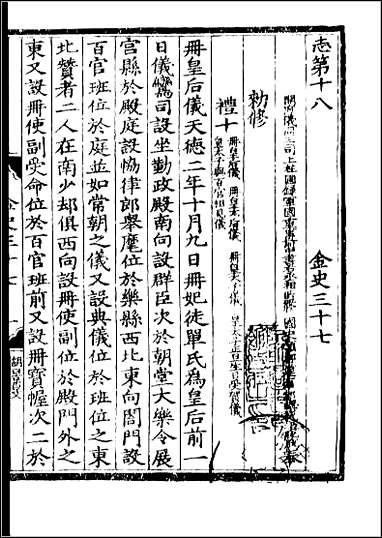 志第十八　金史三十七
開府儀同三司上柱國錄軍國重事
勑修
禮十
冊皇后儀　冊皇太后儀　冊皇太子儀
皇太子與百官相見儀
冊皇后儀天德二年十月九日冊妃徒單氏爲皇后前一
日儀鸞司設坐勤政殿南向設群臣次於朝堂大樂令展
宮縣於殿庭設協律郎舉麾位於樂縣西北東向閤門設
百官班位於庭並如常朝之儀又設典儀位於班位之東
北贊者二人在南少却俱西向設冊使副位於殿門外之
東又設冊使副受命位於百官班前又設冊寶幄次二於